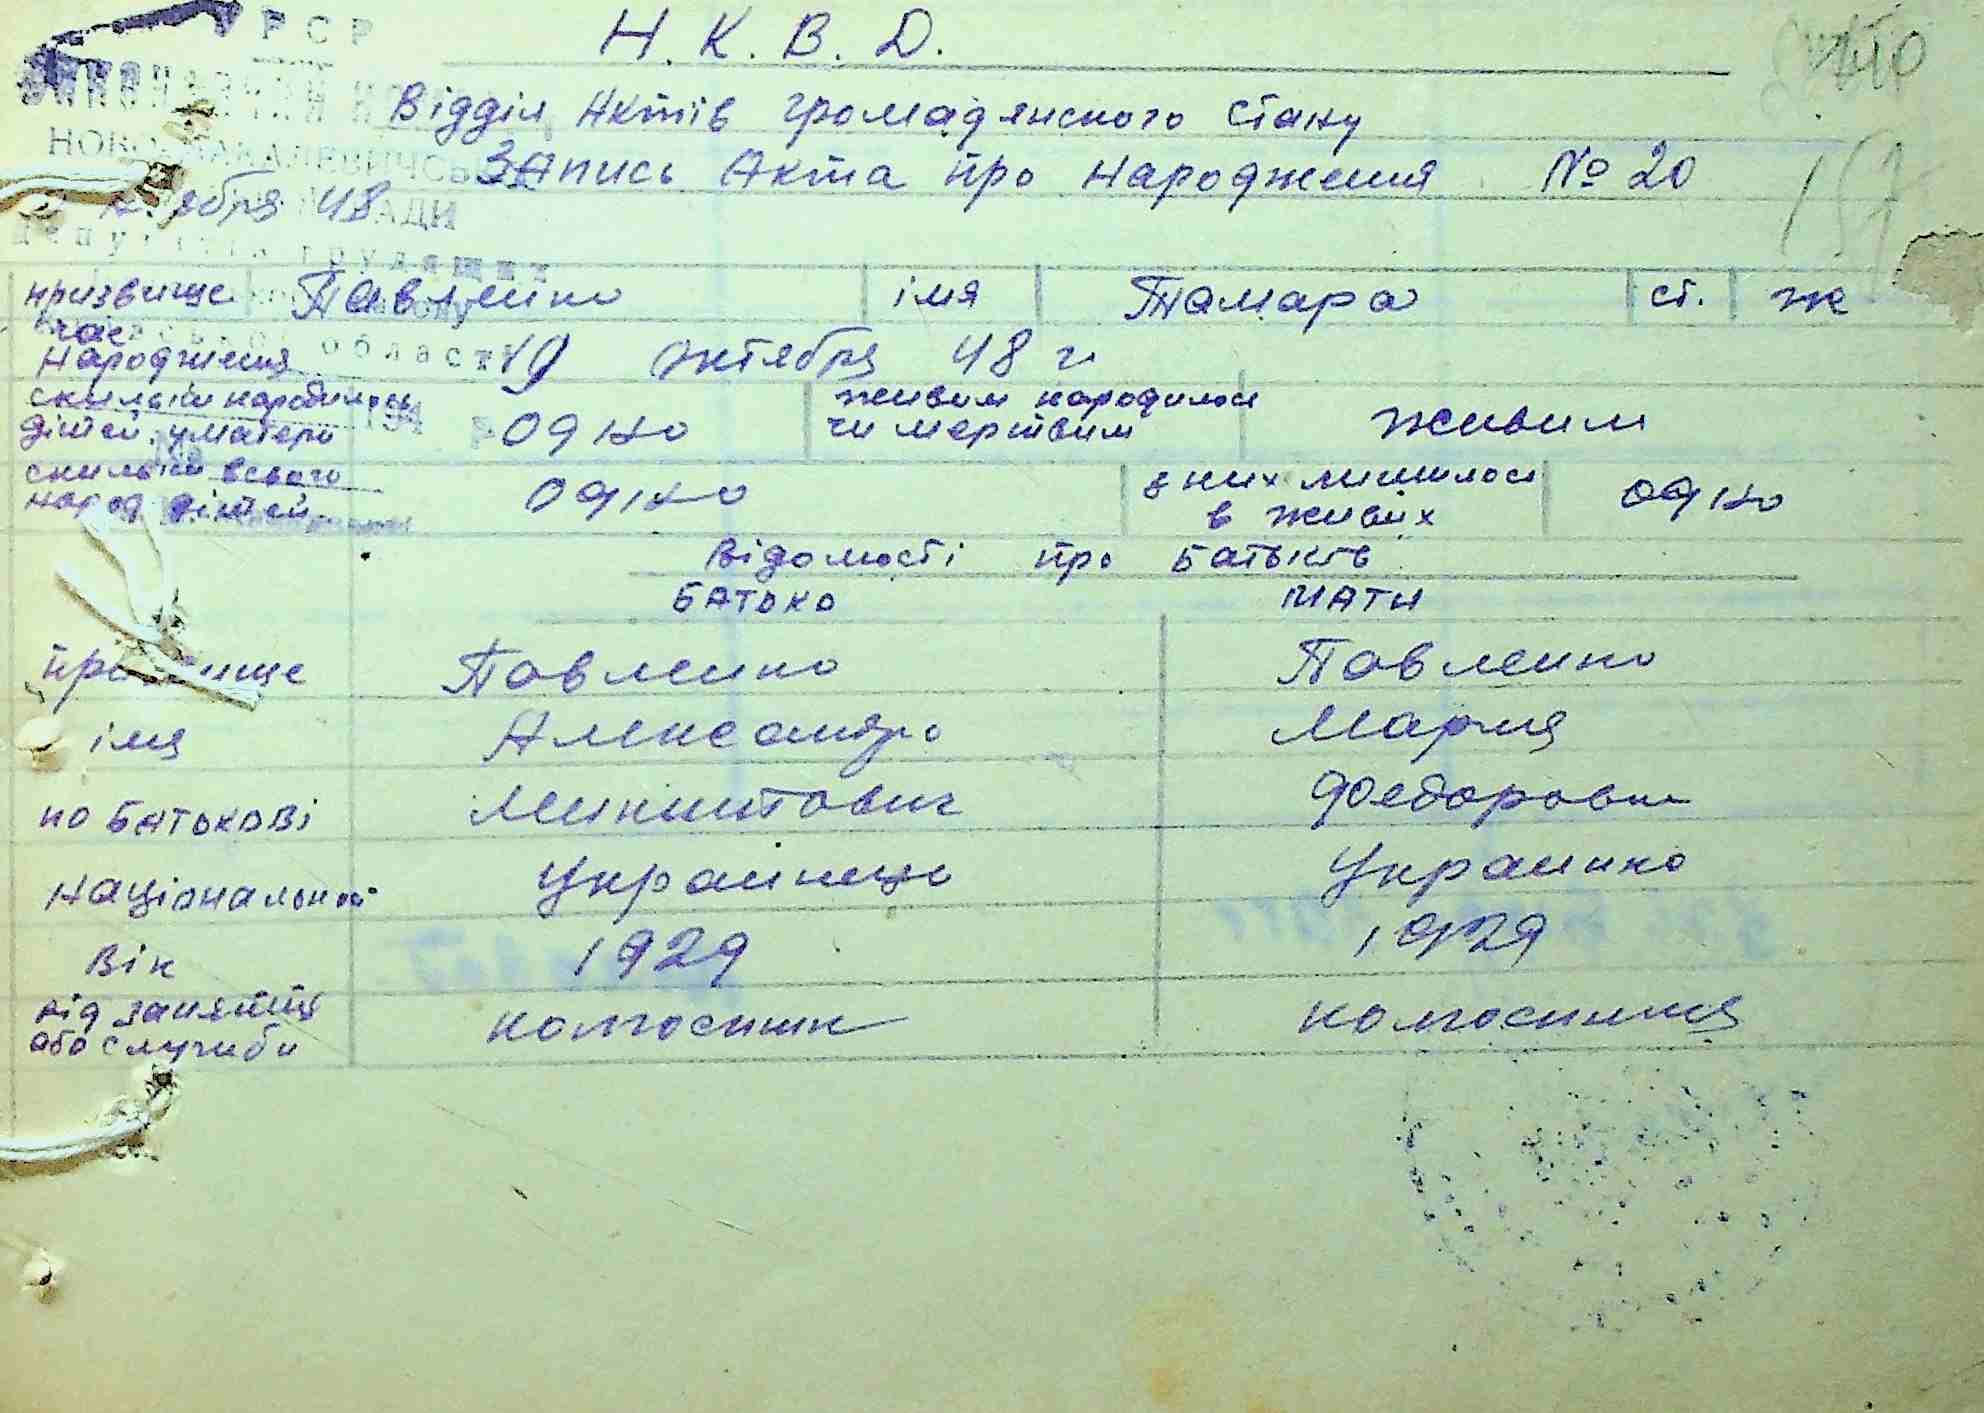 Н. К. В. Д.
Відділ Актів громадянского стану
Запись Акта про народження № 20
48
призвище Павленко імя Тамара ст. ж
час народження 19 октября 48 г
скильки народилось дітей у матери одно живим народилося чи мертвим живим
скильки всього народ дітей одно з них лишилося в живих одно
Відомості про батьків
Батько Мати
Павленко Павленко
імя Александр Мария
по батькові Никитович Федоровна
національність Украинець Украинка
Вік 1929 1929
від заняття або служби колгоспник колгоспниця